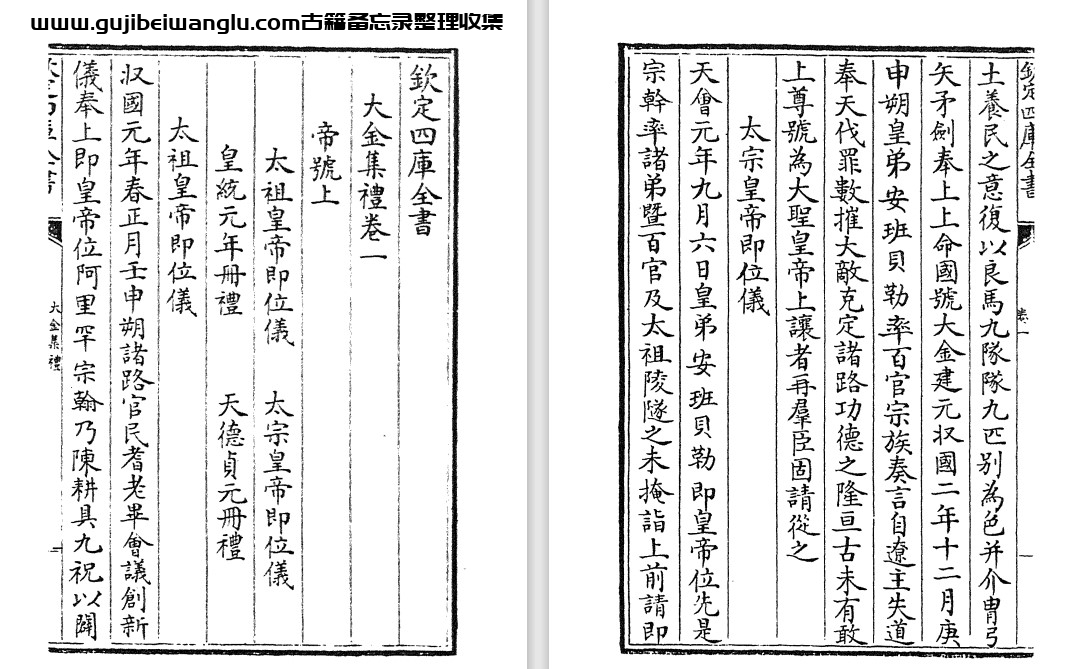 www.gujibeiwanglu.com古籍备忘录整理收集
欽定四庫全書
大金集禮卷一
帝號上
太祖皇帝即位儀 太宗皇帝即位儀
皇統元年冊禮 天德貞元冊禮
太祖皇帝即位儀
收國元年春正月壬申朔諸路官民耆老畢會議創新
儀奉上即皇帝位阿里罕宗翰乃陳耕具九祝以闢
大金集禮
一
欽定四庫全書
卷一
土養民之意復以良馬九隊隊九匹别為色并介胄弓
矢矛劍奉上上命國號大金建元收國二年十二月庚
申朔皇弟安班貝勒率百官宗族奏言自遼主失道
奉天伐罪數摧大敵克定諸路功德之隆亘古未有敢
上尊號為大聖皇帝上讓者再羣臣固請從之
太宗皇帝即位儀
天會元年九月六日皇弟安班貝勒即皇帝位先是
宗幹率諸弟暨百官及太祖陵隧之未掩詣上前請即